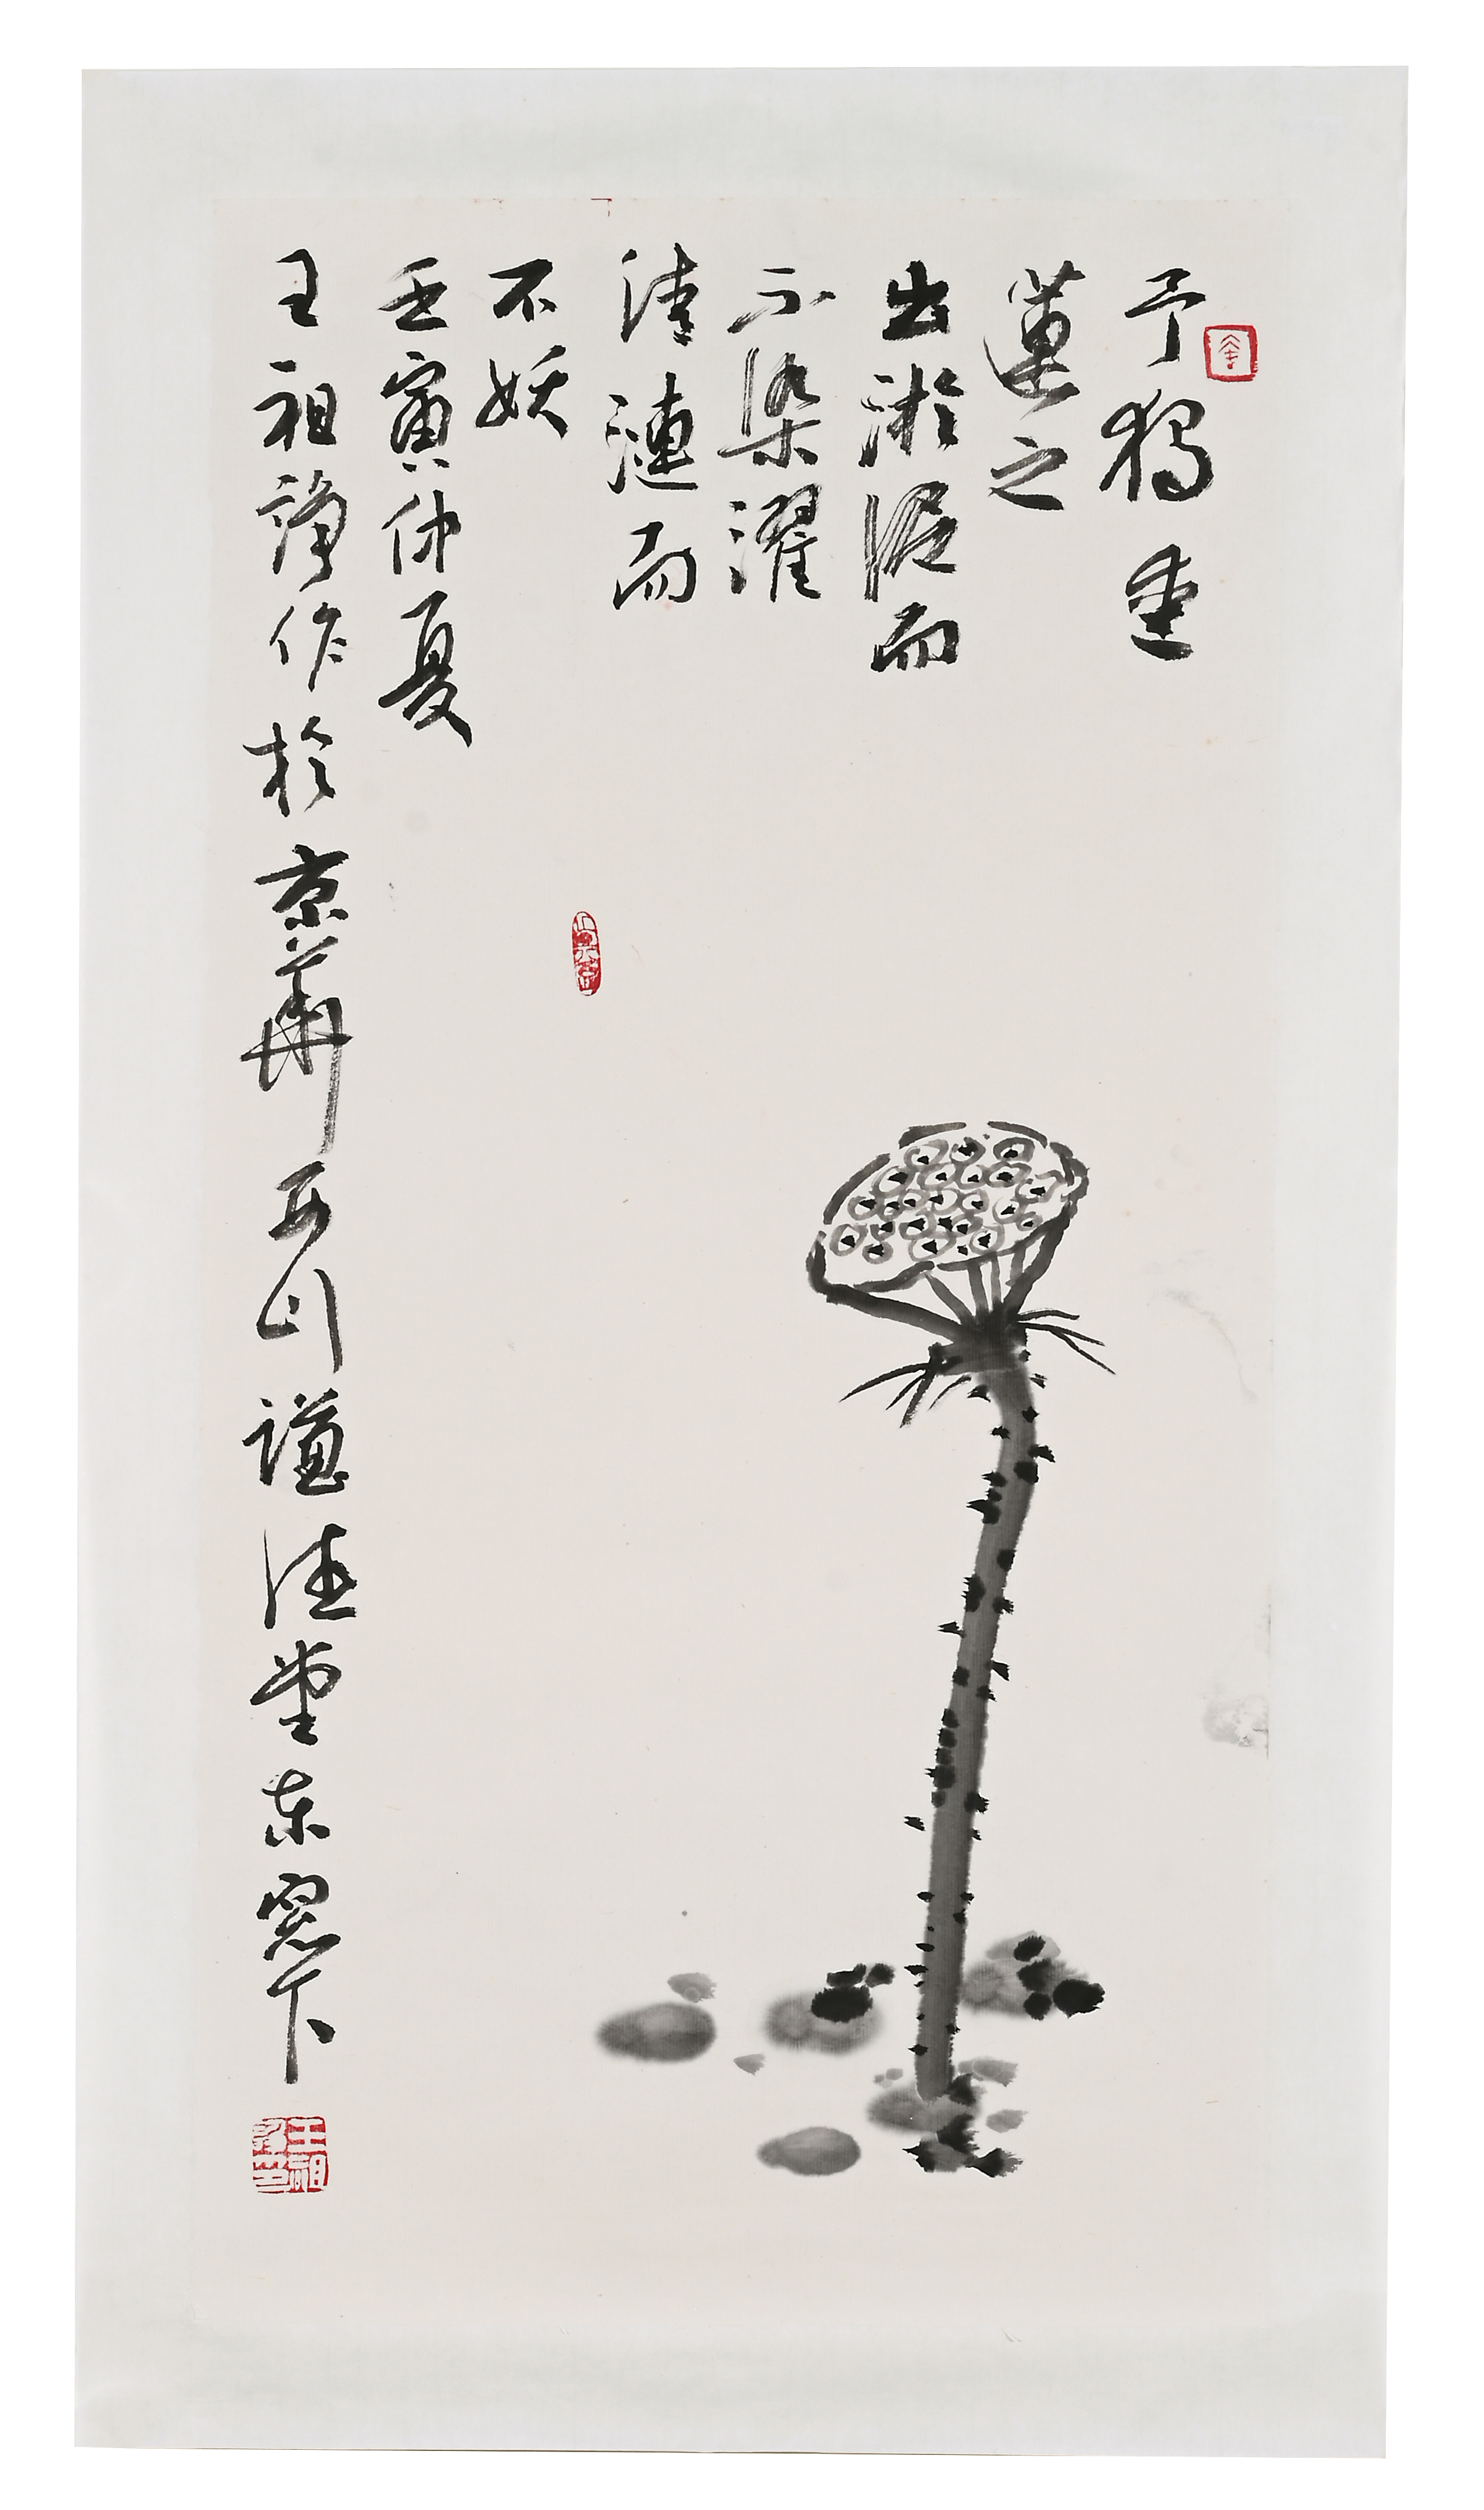 予獨愛
蓮之
出淤泥而
不染濯
清漣而
不妖
壬寅仲夏
王祖諍作於京華西山謙德堂東窓下
王祖